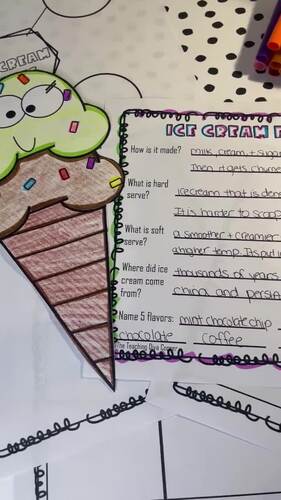 CREAM
ICE CREAM F
How is it made? milk, cream, + suga
Then it gets churne
What is hard serve? icecream that is den
It is harder to scoop
What is soft serve? a smoother + creamier
a higher temp. Its put in
Where did ice cream come from? thousands of years
china and persia
Name 5 Flavors: mint chocolate chip
chocolate coffee
The Teaching Diva Corner